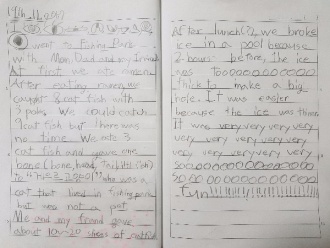 I went to Fishing Park
with Mom, Dad and my friend.
At first we ate ramen.
After eating ramen, we
caught 8 cat fish with
3 pole. We could catch
9 cat fish but there was
no time. We ate 3
cat fish and gave one
bone (bone, head, tail)
to who was a
cat that lived in fishing park
but was not a pet.
Me and my friend gave
about 10~20 of catfish
After lunch, we broke
ice in a pool because
2 hours before, the ice
was Tooooooooooooo
thick to make a big
hole. It was easier
because the ice was thinner.
It was very very very very
very very very very very
very very very very very
sooooooooooooooo
oooooooooooooo
fun!!!!!!!!!!!!!!!!!!!!